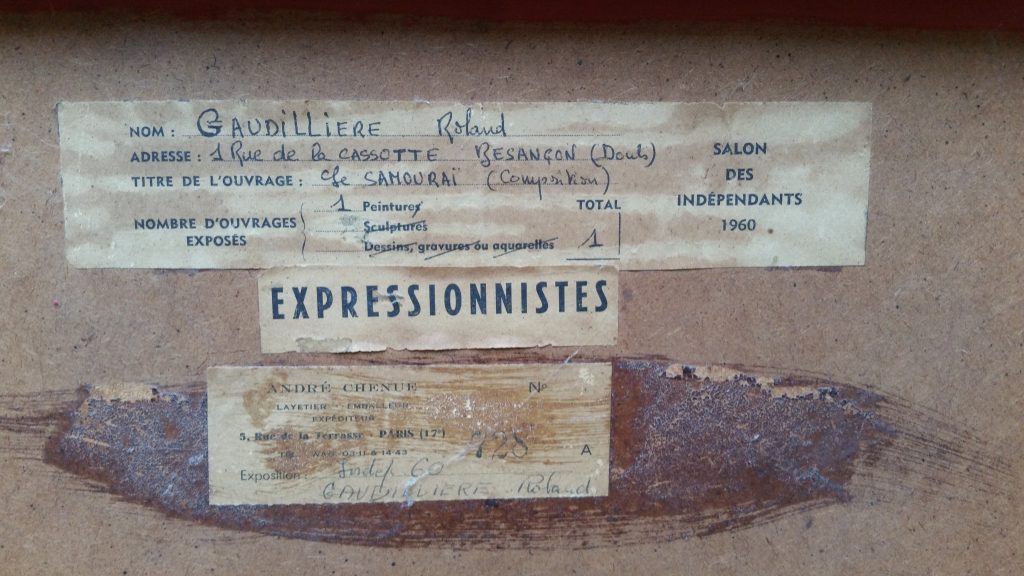 NOM : GAUDILLIERE Roland
ADRESSE : 1 Rue de la CASSOTTE BESANÇON (Doubs)
TITRE DE L'OUVRAGE : Le SAMOURAÏ (Composition)
NOMBRE D'OUVRAGES EXPOSÉS
1 Peintures
Sculptures
Dessins, gravures ou aquarelles
TOTAL
1
SALON
DES
INDÉPENDANTS
1960
EXPRESSIONNISTES
ANDRÉ CHENUE No
LAYETIER - EMBALLEUR
EXPÉDITEUR
5, Rue de la Terrasse - PARIS (17e)
728 A
Exposition : Indep 60
GAUDILLIERE Roland